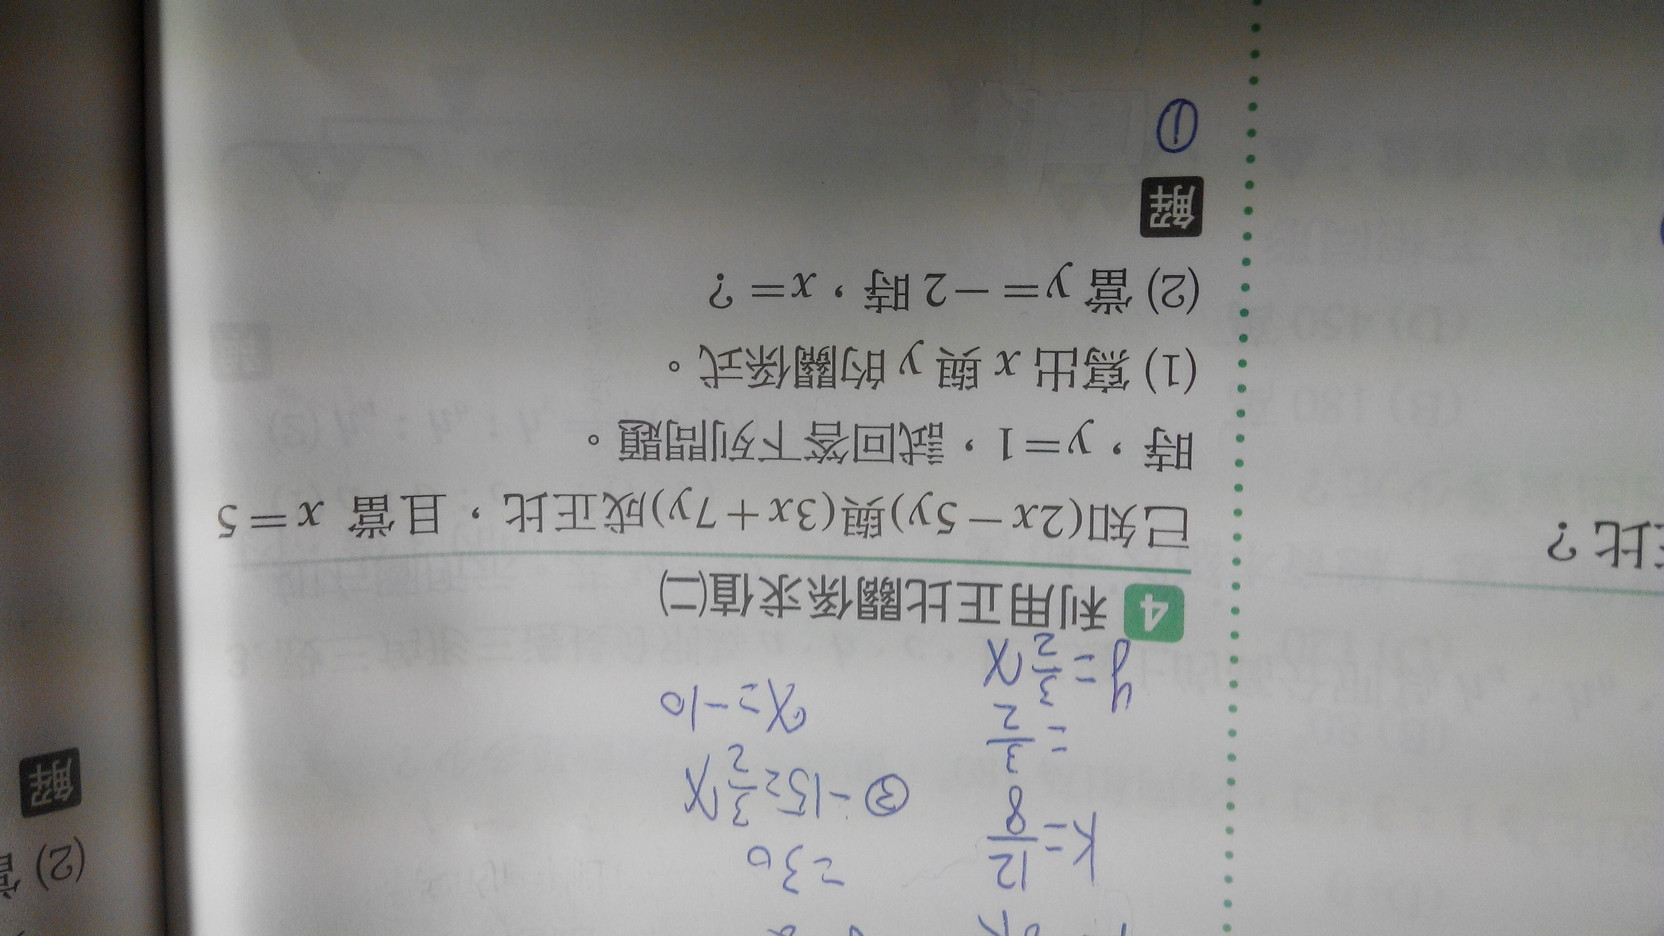 k=12/8
=3/2
y=3/2 x
=30
② -15=3/2 x
x=-10
4 利用正比關係求值(二)
已知(2x-5y)與(3x+7y)成正比，且當 x=5
時，y=1，試回答下列問題。
(1) 寫出 x 與 y 的關係式。
(2) 當 y=-2 時，x=？
解
①
比？
(2) 當
解